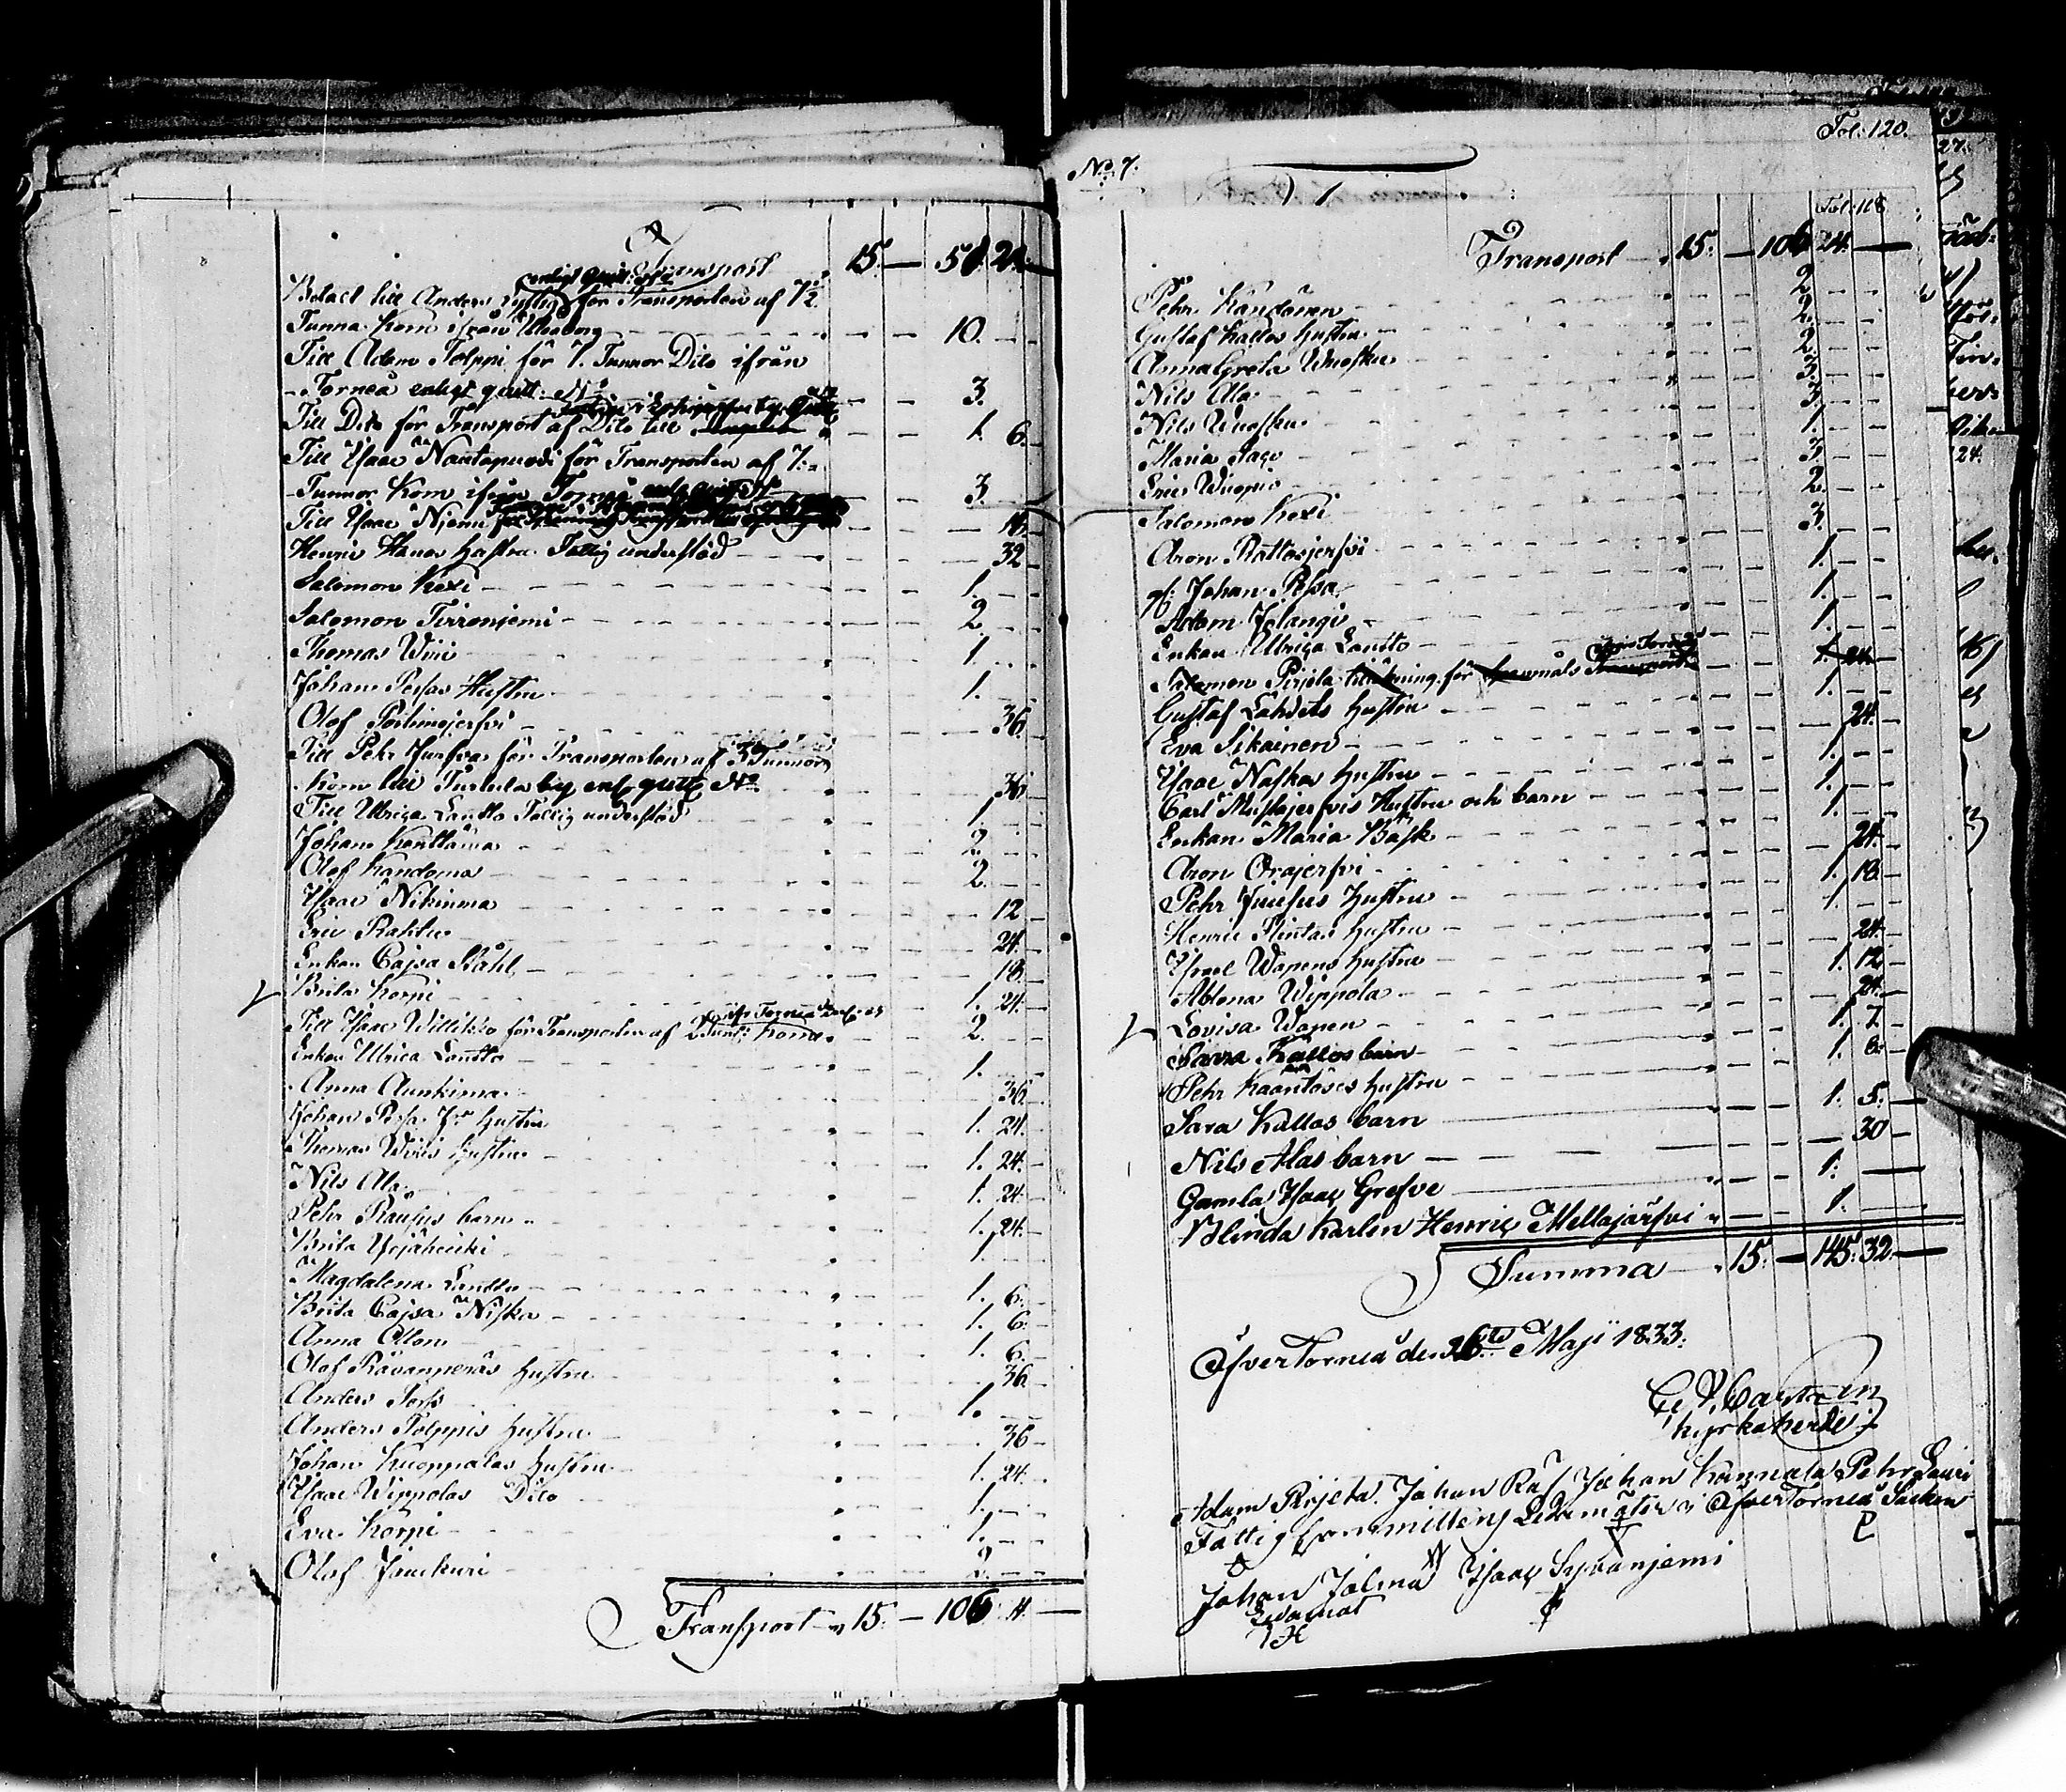 Transport 15. — 51. 24. —
enligt Quitt: N:o
Betalt till Anders för Transporten af 7½
Tunna Korn ifrån Uleåborg 10.
Till Adam Tolppi för 7. Tunnor Dito ifrån
Torneå enligt quitt. N:o 3.
Till Dito för Transport af Dito till 1. 6.
Till Isaac Nautapuodi för Transporten af 7.
Tunnor Korn ifrån Torneå enl. quitt. N:o 3.
Till Isaac Niemi 16.
Henric Hanos Hustru Fattig understöd 32
Salomon Kexi 1.
Salomon Tirroniemi 2.
Thomas Wiri 1.
Johan Pesas Hustru 1.
Olof Portimojerfvi 36
Till Pehr Jurfva för Transporten af 3 Tunnor
Korn till Turtola by enl. quitt. N:o 36
Till Ulrica Lantto Fattig understöd 1.
Johan Kenttämä 2.
Olof Kandoma 2.
Isaac Nikinma 12
Eric Rahtu 24.
Enkan Cajsa Ståhl 18
Brita Korpi 1. 24.
ifr. Torneå enl.
Till Isaac Willikko för Transporten af 2 Tunl: Korn 2.
Enkan Ulrica Lantto 1.
Anna Aunkima 36.
Johan Pesa J:r Hustru 1. 24.
Thomas Wiris Hustru 1. 24.
Nils Ala 1. 24.
Pehr Raufus barn 1. 24.
Brita Yrjäheiki 1.
Magdalena Lantto 1. 6.
Brita Cajsa Niska 1. 6.
Anna Ollon 1. 6.
Olof Rävanperäs Hustru 36
Anders Poss 1.
Anders Tolppis Hustru 36
Johan Kuoppalas Hustru 1. 24.
Isaac Wippolas Dito 1.
Eva Korpi 1.
Olof Jaukuri 2.
Transport 15. — 106. 4. —
No 7.
Fol: 120.
Fol: 118
Transport 15. — 106 24. —
Pehr Kandonen 2.
Gustaf Kallos Hustru 2.
Anna Greta Wuosku 2.
Nils Ala 3.
Nils Wuosku 3.
Maria Sago 1.
Eric Wuopio 3.
Salomon Kexi 2.
Aron Rattosjerfvi 3.
Johan Pesa 1.
Adam Jolangi 1.
Enkan Ulrica Lantto 1.
Salomon Pirjeta för 1. 24.
Gustaf Lahdets Hustru 1.
Eva Sikainen 24.
Isaac Naskas Hustru 1.
Carl Mustajerfvis Hustru och barn 1.
Enkan Maria Bask 1.
Aron Orajerfvi 24.
Pehr Juusus Hustru 1. 18.
Henric Plintas Hustru 1.
Israel Wapens Hustru 24.
Ablona Wippola 1. 12
Lovisa Wapen 24.
Sara Kallos barn 1. 7.
Pehr Kaantoses Hustru 1. 6.
Sara Kallos barn 1. 5.
Nils Alas barn 30
Gamla Isaac Grefve 1.
Blinda Karlen Henric Mellajärfvi 1.
Summa 15. — 145. 32. —
ÖfverTorneå den 26te Maji 1833.
Castrén
Kyrkoherde
Adam Pirjeta. Johan Raf Johan Kannala Pehr Lauri
Fattig Committens Ledamöter i ÖfverTorneå Socken
Johan Jolma Isaac Syvänjemi
Ledamot